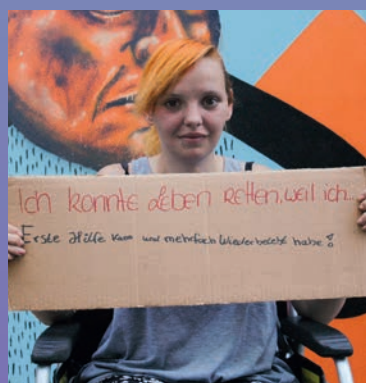 Ich konnte Leben Retten, weil ich...
Erste Hilfe kann und mehrfach Wiederbelebt habe!